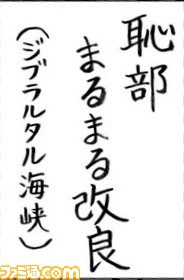 恥部
まるまる改良
(ジブラルタル海峡)
ファミ通.com